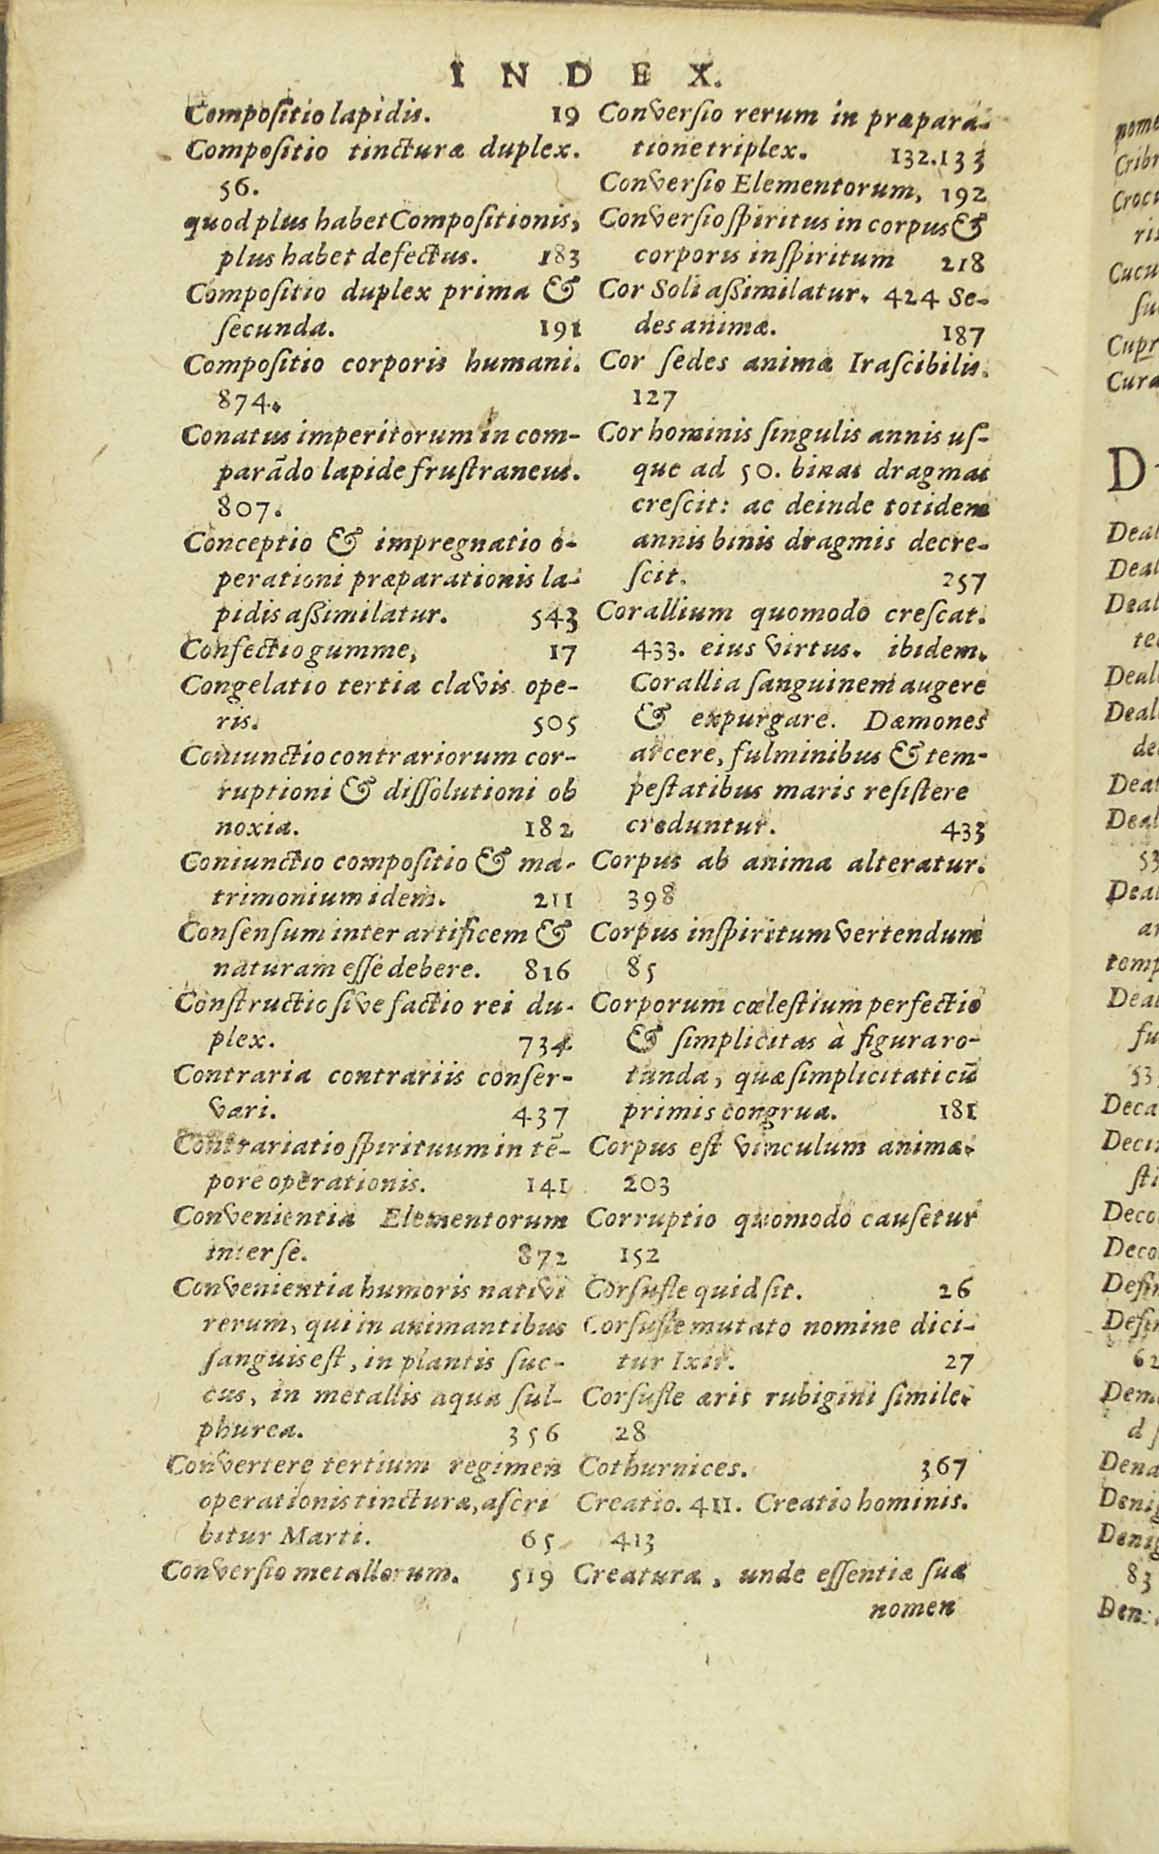 INDEX.
Compositio lapidis. 19
Compositio tincturæ duplex.
56.
quod plus habet Compositionis,
plus habet defectus. 183
Compositio duplex prima &
secunda. 191
Compositio corporis humani.
874.
Conatus imperitorum in com-
parādo lapide frustraneus.
807.
Conceptio & impregnatio o-
perationi præparationis la-
pidis aßimilatur. 543
Confectio gumme, 17
Congelatio tertia clavis ope-
ris. 505
Coniunctio contrariorum cor-
ruptioni & dissolutioni ob
noxia. 182
Coniunctio compositio & ma-
trimonium idem. 211
Consensum inter artificem &
naturam esse debere. 816
Constructio sive factio rei du-
plex. 734
Contraria contrariis conser-
vari. 437
Contrariatio spirituum in tē-
pore operationis. 141
Convenientia Elementorum
inter se. 872
Convenientia humoris nativi
rerum, qui in animantibus
sanguis est, in plantis suc-
cus, in metallis aqua sul-
phurea. 356
Convertere tertium regimen
operationis tincturæ, ascri
bitur Marti. 65
Conversio metallorum. 519
Conversio rerum in præpara-
tione triplex. 132.133
Conversio Elementorum, 192
Conversio spiritus in corpus &
corporis in spiritum 218
Cor Soli aßimilatur. 424 Se-
des animæ. 187
Cor sedes animæ Irascibilis.
127
Cor hominis singulis annis us-
que ad 50. binas dragmas
crescit: ac deinde totidem
annis binis dragmis decre-
scit. 257
Corallium quomodo crescat.
433. eius virtus. ibidem.
Corallia sanguinem augere
& expurgare. Dæmones
arcere, fulminibus & tem-
pestatibus maris resistere
creduntur. 433
Corpus ab anima alteratur.
398
Corpus in spiritum vertendum
85
Corporum cœlestium perfectio
& simplicitas à figura ro-
tunda, quæ simplicitati cū
primis congrua. 181
Corpus est vinculum animæ.
203
Corruptio quomodo causetur
152
Corsufle quid sit. 26
Corsufle mutato nomine dici-
tur Ixir. 27
Corsufle æris rubigini simile.
28
Cothurnices. 367
Creatio. 411. Creatio hominis.
413
Creaturæ, unde essentiæ suæ
nomen